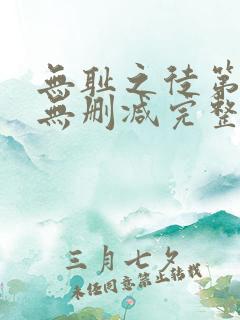 無耻之徒第
無删减完整
三月七夕
未经同意禁止转载